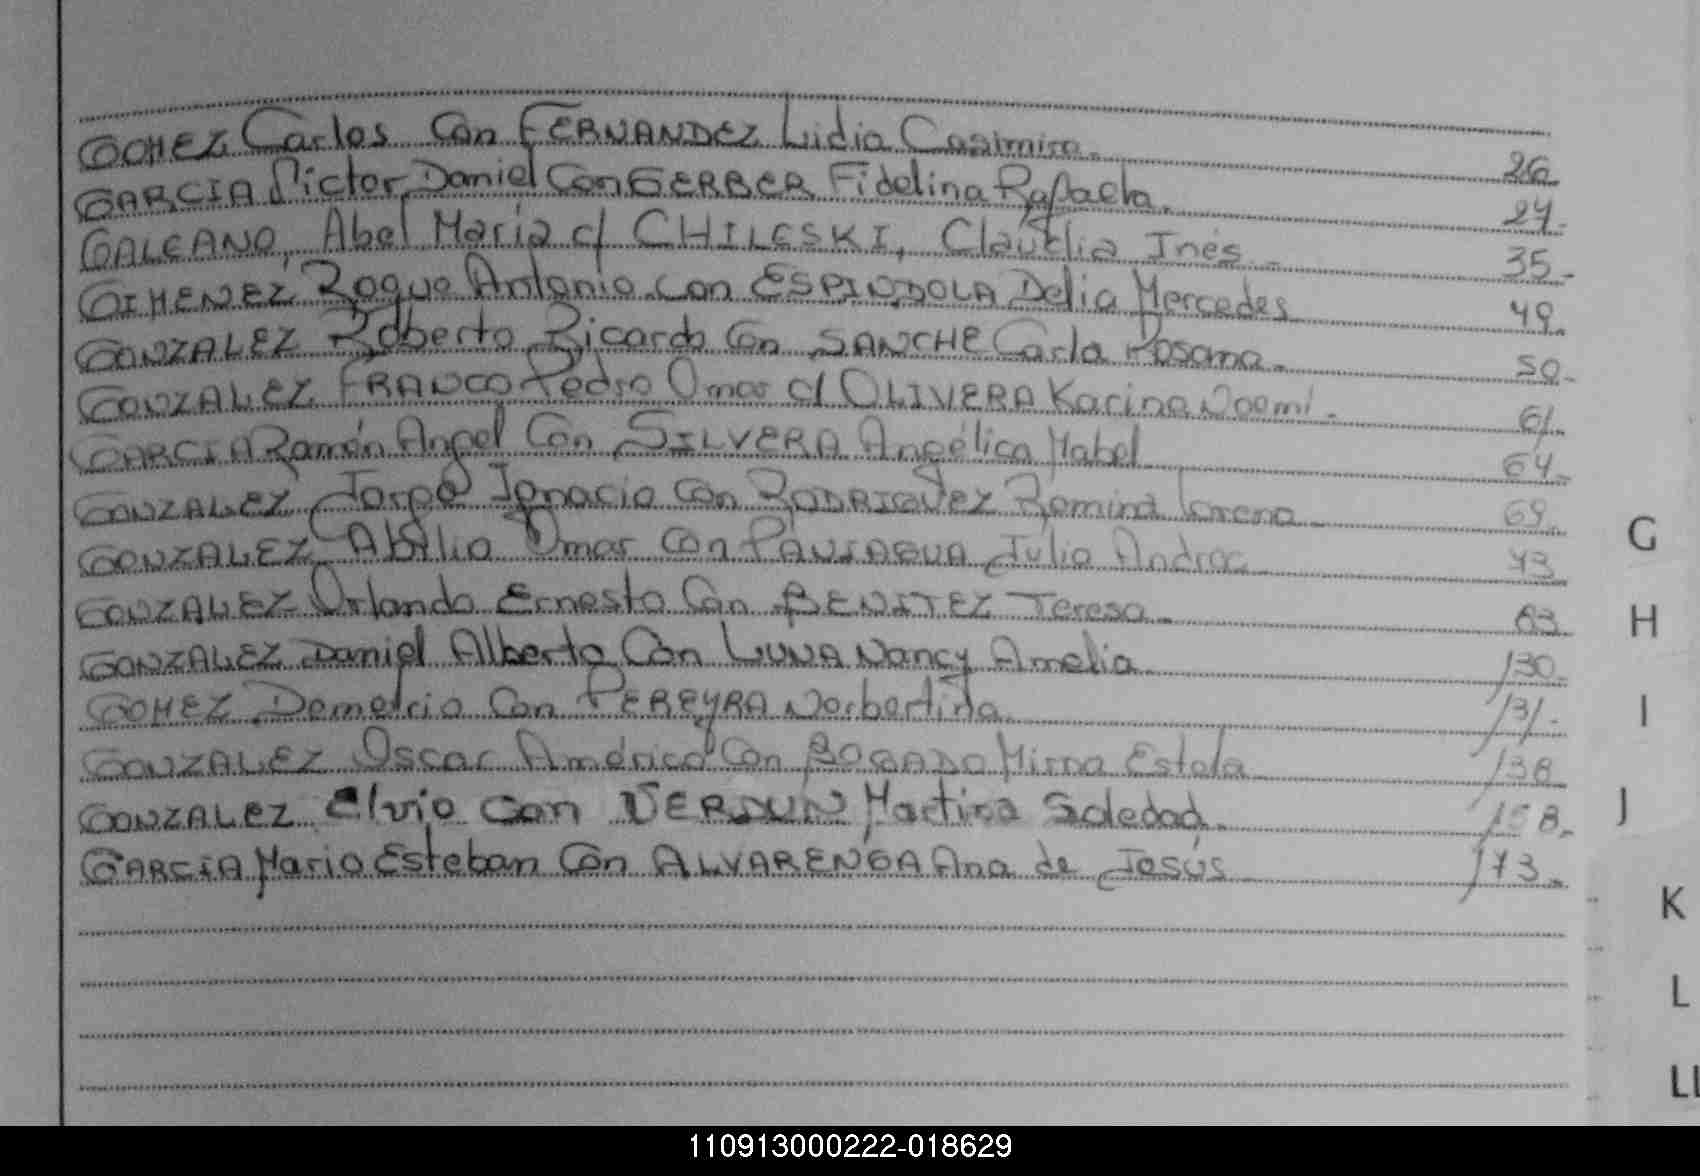 GOMEZ Carlos Con FERNANDEZ Lidia Casimira. 26.
GARCIA Victor Daniel Con GERBER Fidelina Rafaela. 27.
GALEANO, Abel Maria c/ CHILESKI, Claudia Inés. 35.
GIMENEZ Roque Antonio con ESPINDOLA Delia Mercedes 49.
GONZALEZ Roberto Ricardo Con SANCHE Carla Rosana. 50.
GONZALEZ FRANCO Pedro Omar c/ OLIVERA Karina Noemi. 61.
GARCIA Ramón Angel Con SILVERA Angélica Mabel 64.
GONZALEZ Jorge Ignacio Con RODRIGUEZ Romina Lorena 69.
GONZALEZ Abilio Omar Con PANIAGUA Julia Andrea 73
GONZALEZ Orlando Ernesto Con BENITEZ Teresa. 83.
GONZALEZ Daniel Alberto Con LUNA Nancy Amelia 130.
GOMEZ Demetrio Con PEREYRA Norbertina 131.
GONZALEZ Oscar Américo Con BOGADO Mirna Estela 138
GONZALEZ Elvio Con VERDUN Martina Soledad. 158.
GARCIA Mario Esteban Con ALVARENGA Ana de Jesús 173.
G
H
I
J
K
L
LL
110913000222-018629